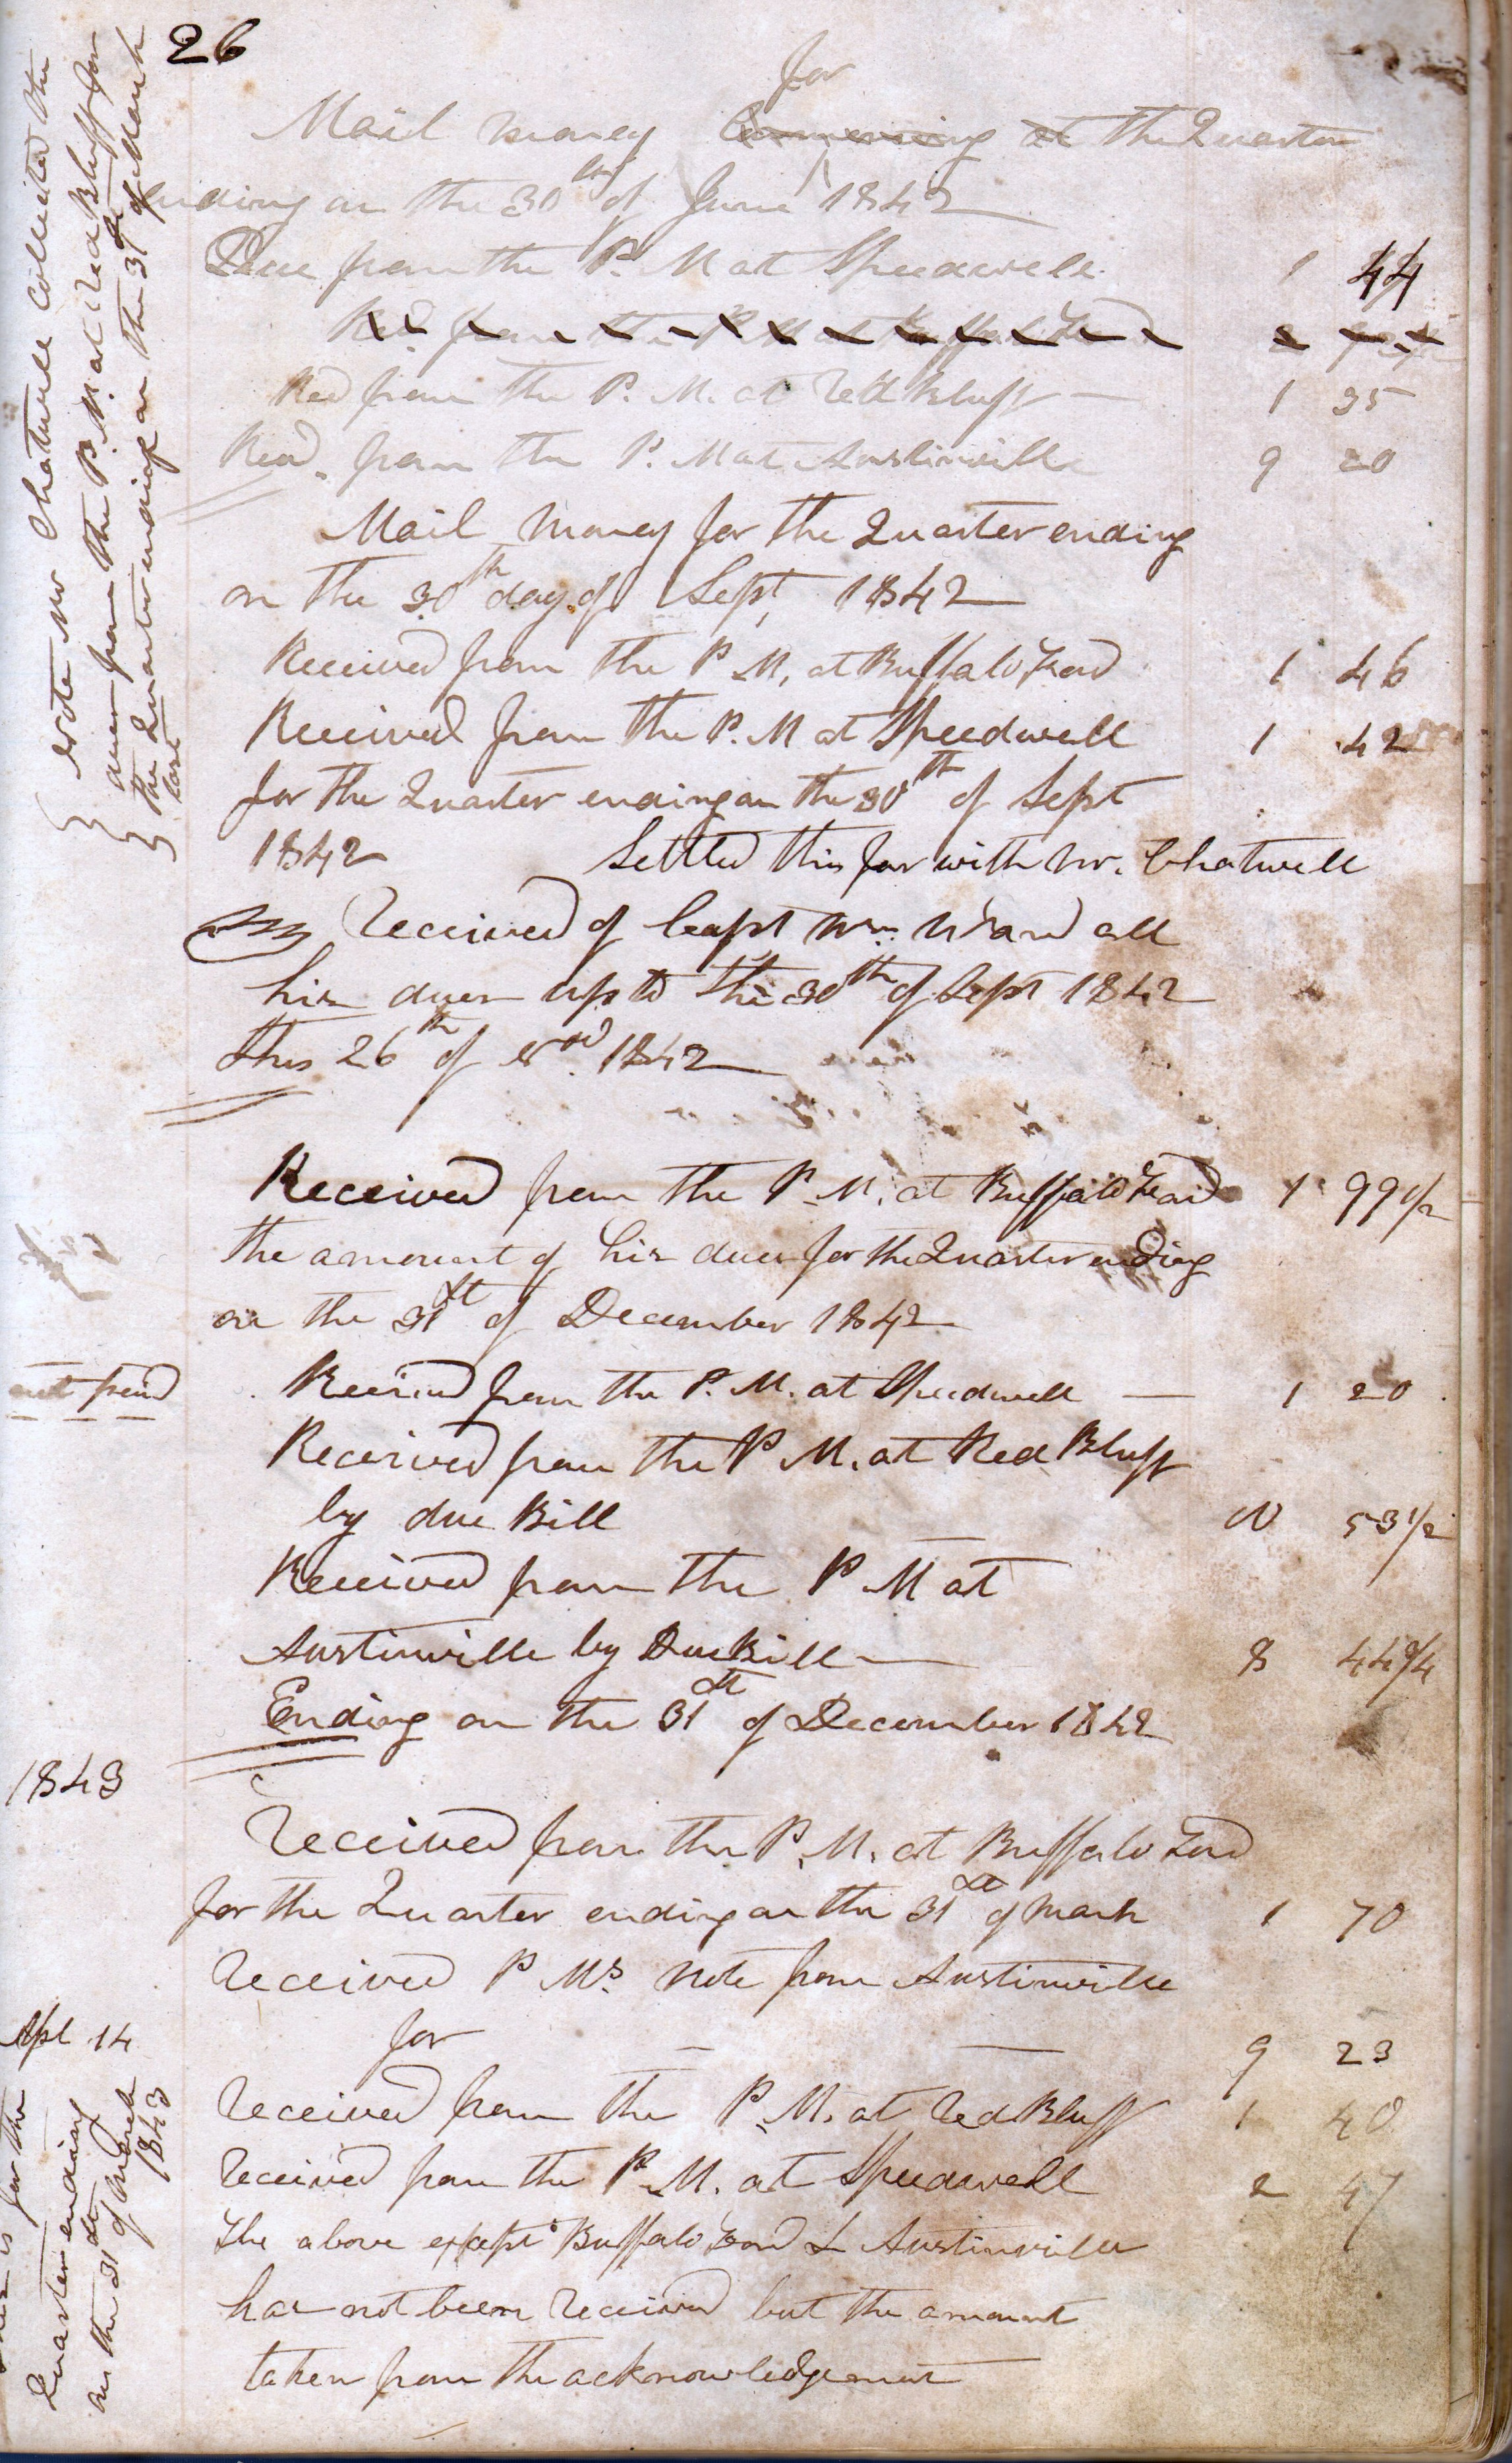 26
for
Mail money ~~Commencing at~~ the Quarter
ending on the 30th day of June 1842
Due from the P. M at Speedwell 1 44
~~Recd from the P M at Buffalo Ford~~
Recd from the P. M. at Red Bluff — 1 35
Recd. from the P. M at Austinville 9 20
Mail money for the Quarter ending
on the 30th day of Sept 1842
Received from the P M, at Buffalo Ford 1 46
Received from the P. M at Speedwell 1 42
for the Quarter ending on the 30th of Sept
1842 Settled this far with Mr. Chatwell
Received of Capt Wm Ward all
his dues up to the 30th of Sept 1842
this 26th of Nov. 1842
Received from the P. M. at Buffalo Ford 1 99 1/2
the amount of his dues for the Quarter ending
on the 31st of December 1842
not paid
Received from the P. M. at Speedwell — 1 20
Received from the P M. at Red Bluff
by due Bill 53 1/2
Received from the P M at
Austinville by Due Bill — 8 44 3/4
Ending on the 31st of December 1842
1843
Received from the P. M. at Buffalo Ford
for the Quarter ending on the 31st of March 1 70
Received P Ms. note from Austinville
for — — 9 23
Apl 14
Received from the P. M. at Red Bluff 1 40
Received from the P. M. at Speedwell 2 47
The above except Buffalo Ford & Austinville
has not been received but the amount
taken from the acknowledgement
Note Mr Chatwell collected the
dues from the P. M. at Red Bluff for
the Quarter ending on the 31st of March
last
is for the
Quarter ending
on the 31st of March
1843